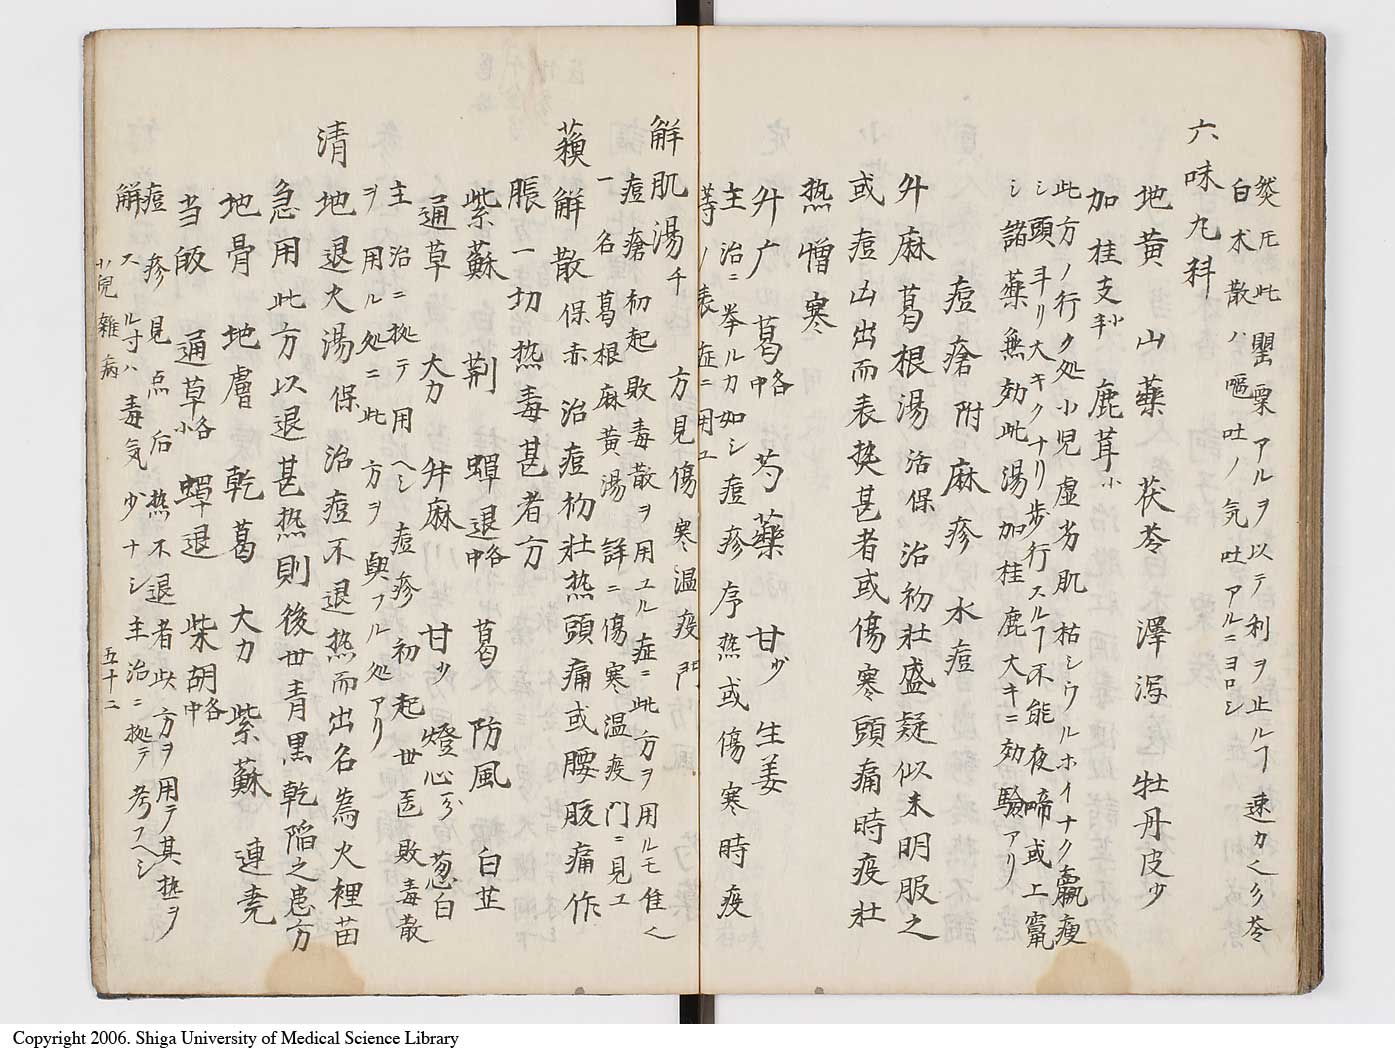 然圧此罌粟アルヲ以テ利ヲ止ルヿ速カ也参苓
白朮散ハ嘔吐ノ気吐アルニヨロシ
六味丸料
地黄 山藥 茯苓 澤泻 牡丹皮少
加桂支小半 鹿茸小
此方ノ行ク処小児虚劣肌枯シウルホイナク羸痩
シ頭斗リ大キクナリ歩行スルヿ不能夜啼或上竄
シ諸藥無効此湯加桂鹿大キニ効驗アリ
痘瘡附麻疹水痘
升麻葛根湯活保 治初壮盛疑似未明服之
或痘出而表热甚者或傷寒頭痛時疫壮
热憎寒
升广 葛各中 芍藥 甘少 生姜
主治ニ挙ルカ如シ痘疹序熱或傷寒時疫
等ノ表症ニ用ユ
解肌湯千 方見傷寒温疫門
痘瘡初起敗毒散ヲ用ユル症ニ此方ヲ用ルモ佳也
一名葛根麻黄湯詳ニ傷寒温疫門ニ見ユ
蘓解散保赤 治痘初壮热頭痛或腰腹痛作
脹一切热毒甚者方
紫蘇 荊 蟬退各中 葛 防風 白芷
通草 大力 升麻 甘少 燈心 葱白
主治ニ拠テ用ヘシ痘疹初起世医敗毒散
ヲ用ル処ニ此方ヲ與フル処アリ
清地退火湯保 治痘不退热而出名為火裡苗
急用此方以退甚热則後世青黒乾陷之患方
地骨 地膚 乾葛 大力 紫蘇 連堯
当皈 通草各小 蟬退 柴胡各中
痘疹見点后热不退者此方ヲ用テ其热ヲ
解スル寸ハ毒気少ナシ主治ニ拠テ考フヘシ
小兒雜病 五十二
Copyright 2006. Shiga University of Medical Science Library